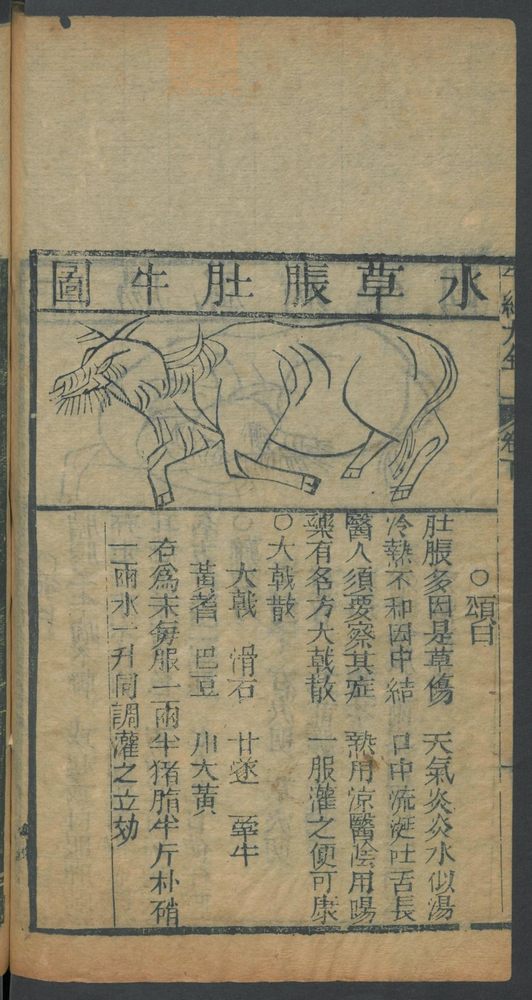 水草脹肚牛圖
○頌曰
肚脹多因是草傷 天氣炎炎水似湯
冷熱不和因中結 口中流涎吐舌長
醫人須要察其症 熱用涼醫陰用陽
藥有名方大戟散 一服灌之便可康
○大戟散
大戟 滑石 甘遂 牽牛
黃蓍 巴豆 川大黃
右為末每服一兩半猪脂半斤朴硝
一兩水一升同調灌之立効